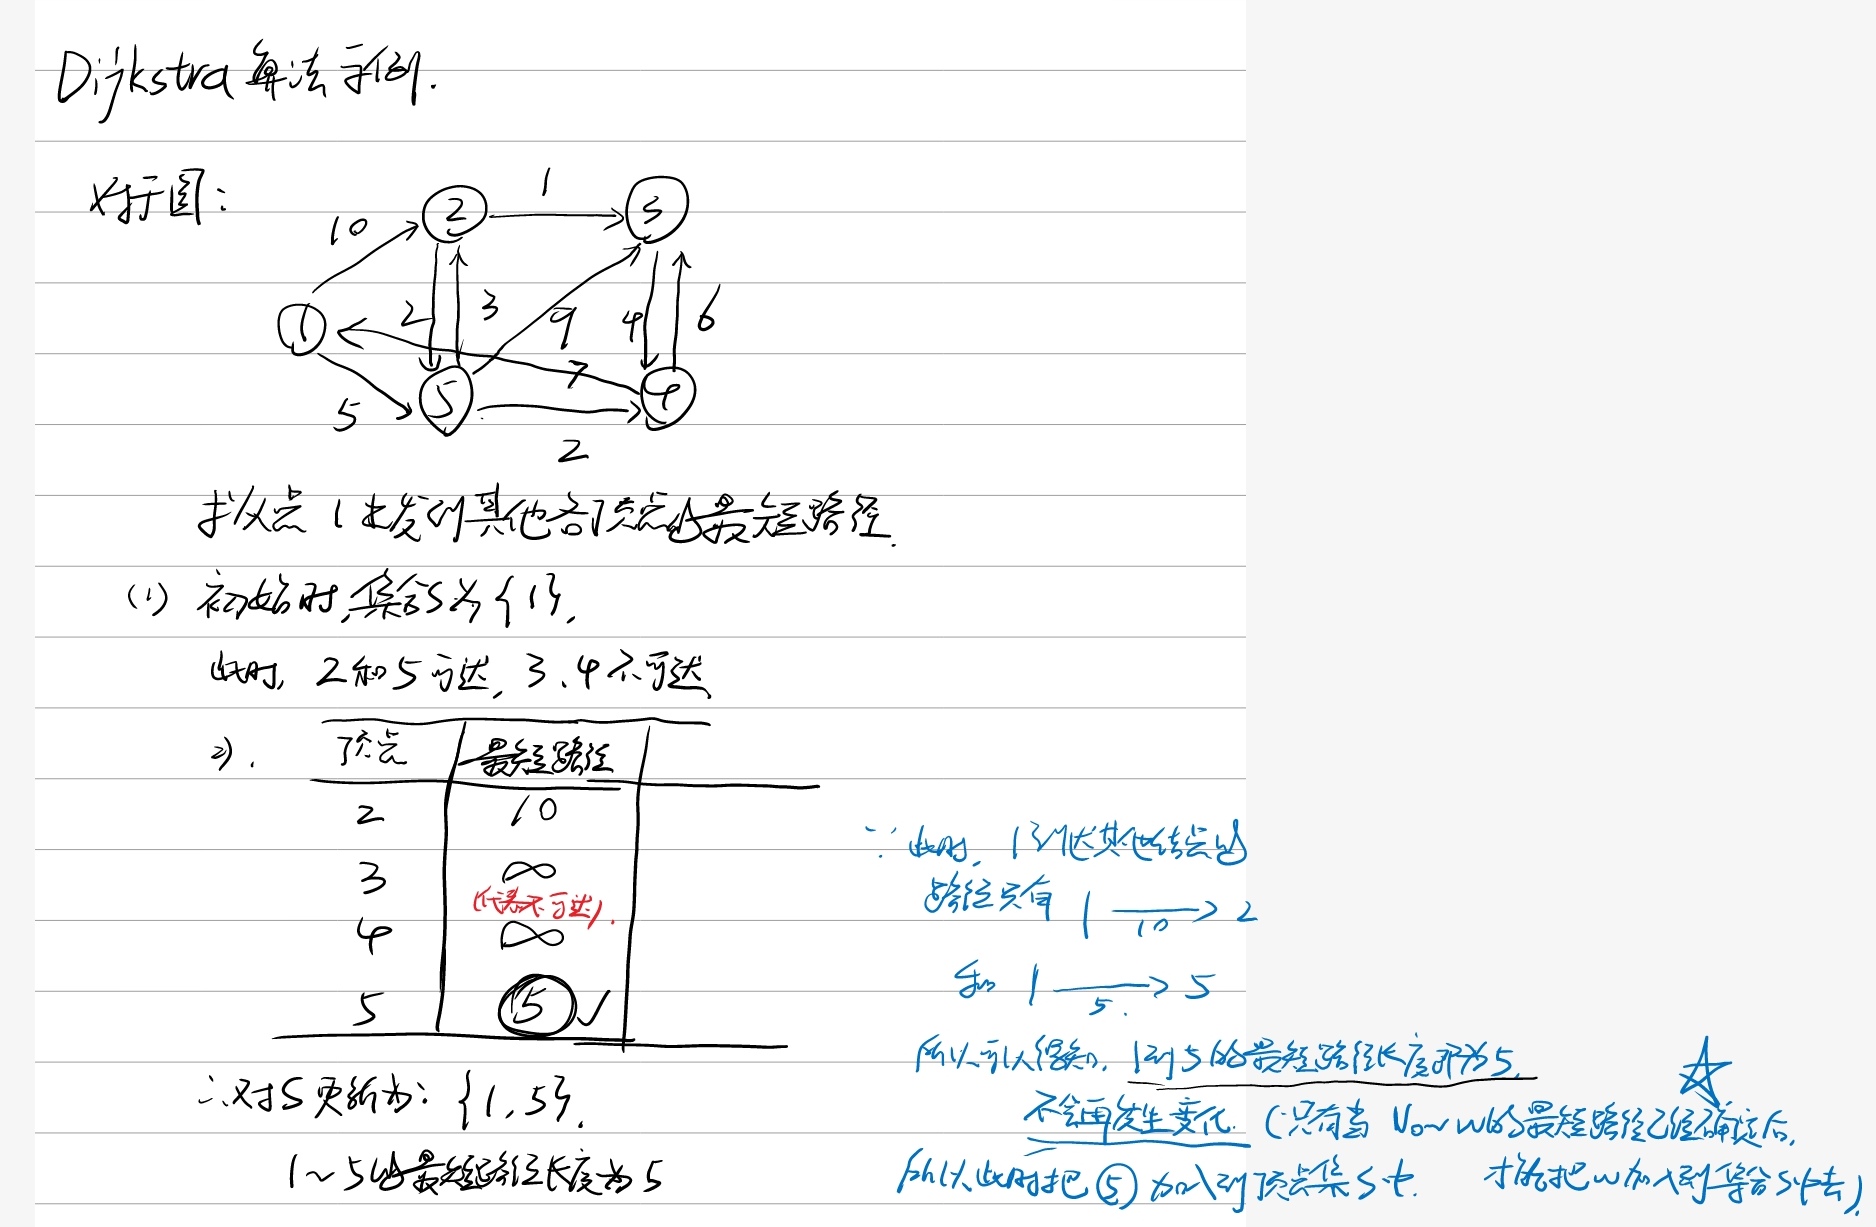 Dijkstra 算法示例.
对于图:
10
1
2
3
1
2
3
9
4
6
7
5
5
4
2
求从点 1 出发到其他各顶点的最短路径.
(1) 初始时,集合S为{1},
此时, 2和5可达, 3、4不可达
2). 顶点 最短路径
2 10
3 ∞
(代表不可达).
4 ∞
5 5 ✓
∴对S更新为: {1, 5},
1~5的最短路径长度为5
∵ 此时, 1到其他结点的
路径只有 1 → 2
10
和 1 → 5
5.
所以可以得知, 1到5的最短路径长度即为5,
不会再发生变化. (只有当 V₀~w的最短路径已经确定后,
所以此时把⑤加入到顶点集S中. 才能把w加入到集合S中去)